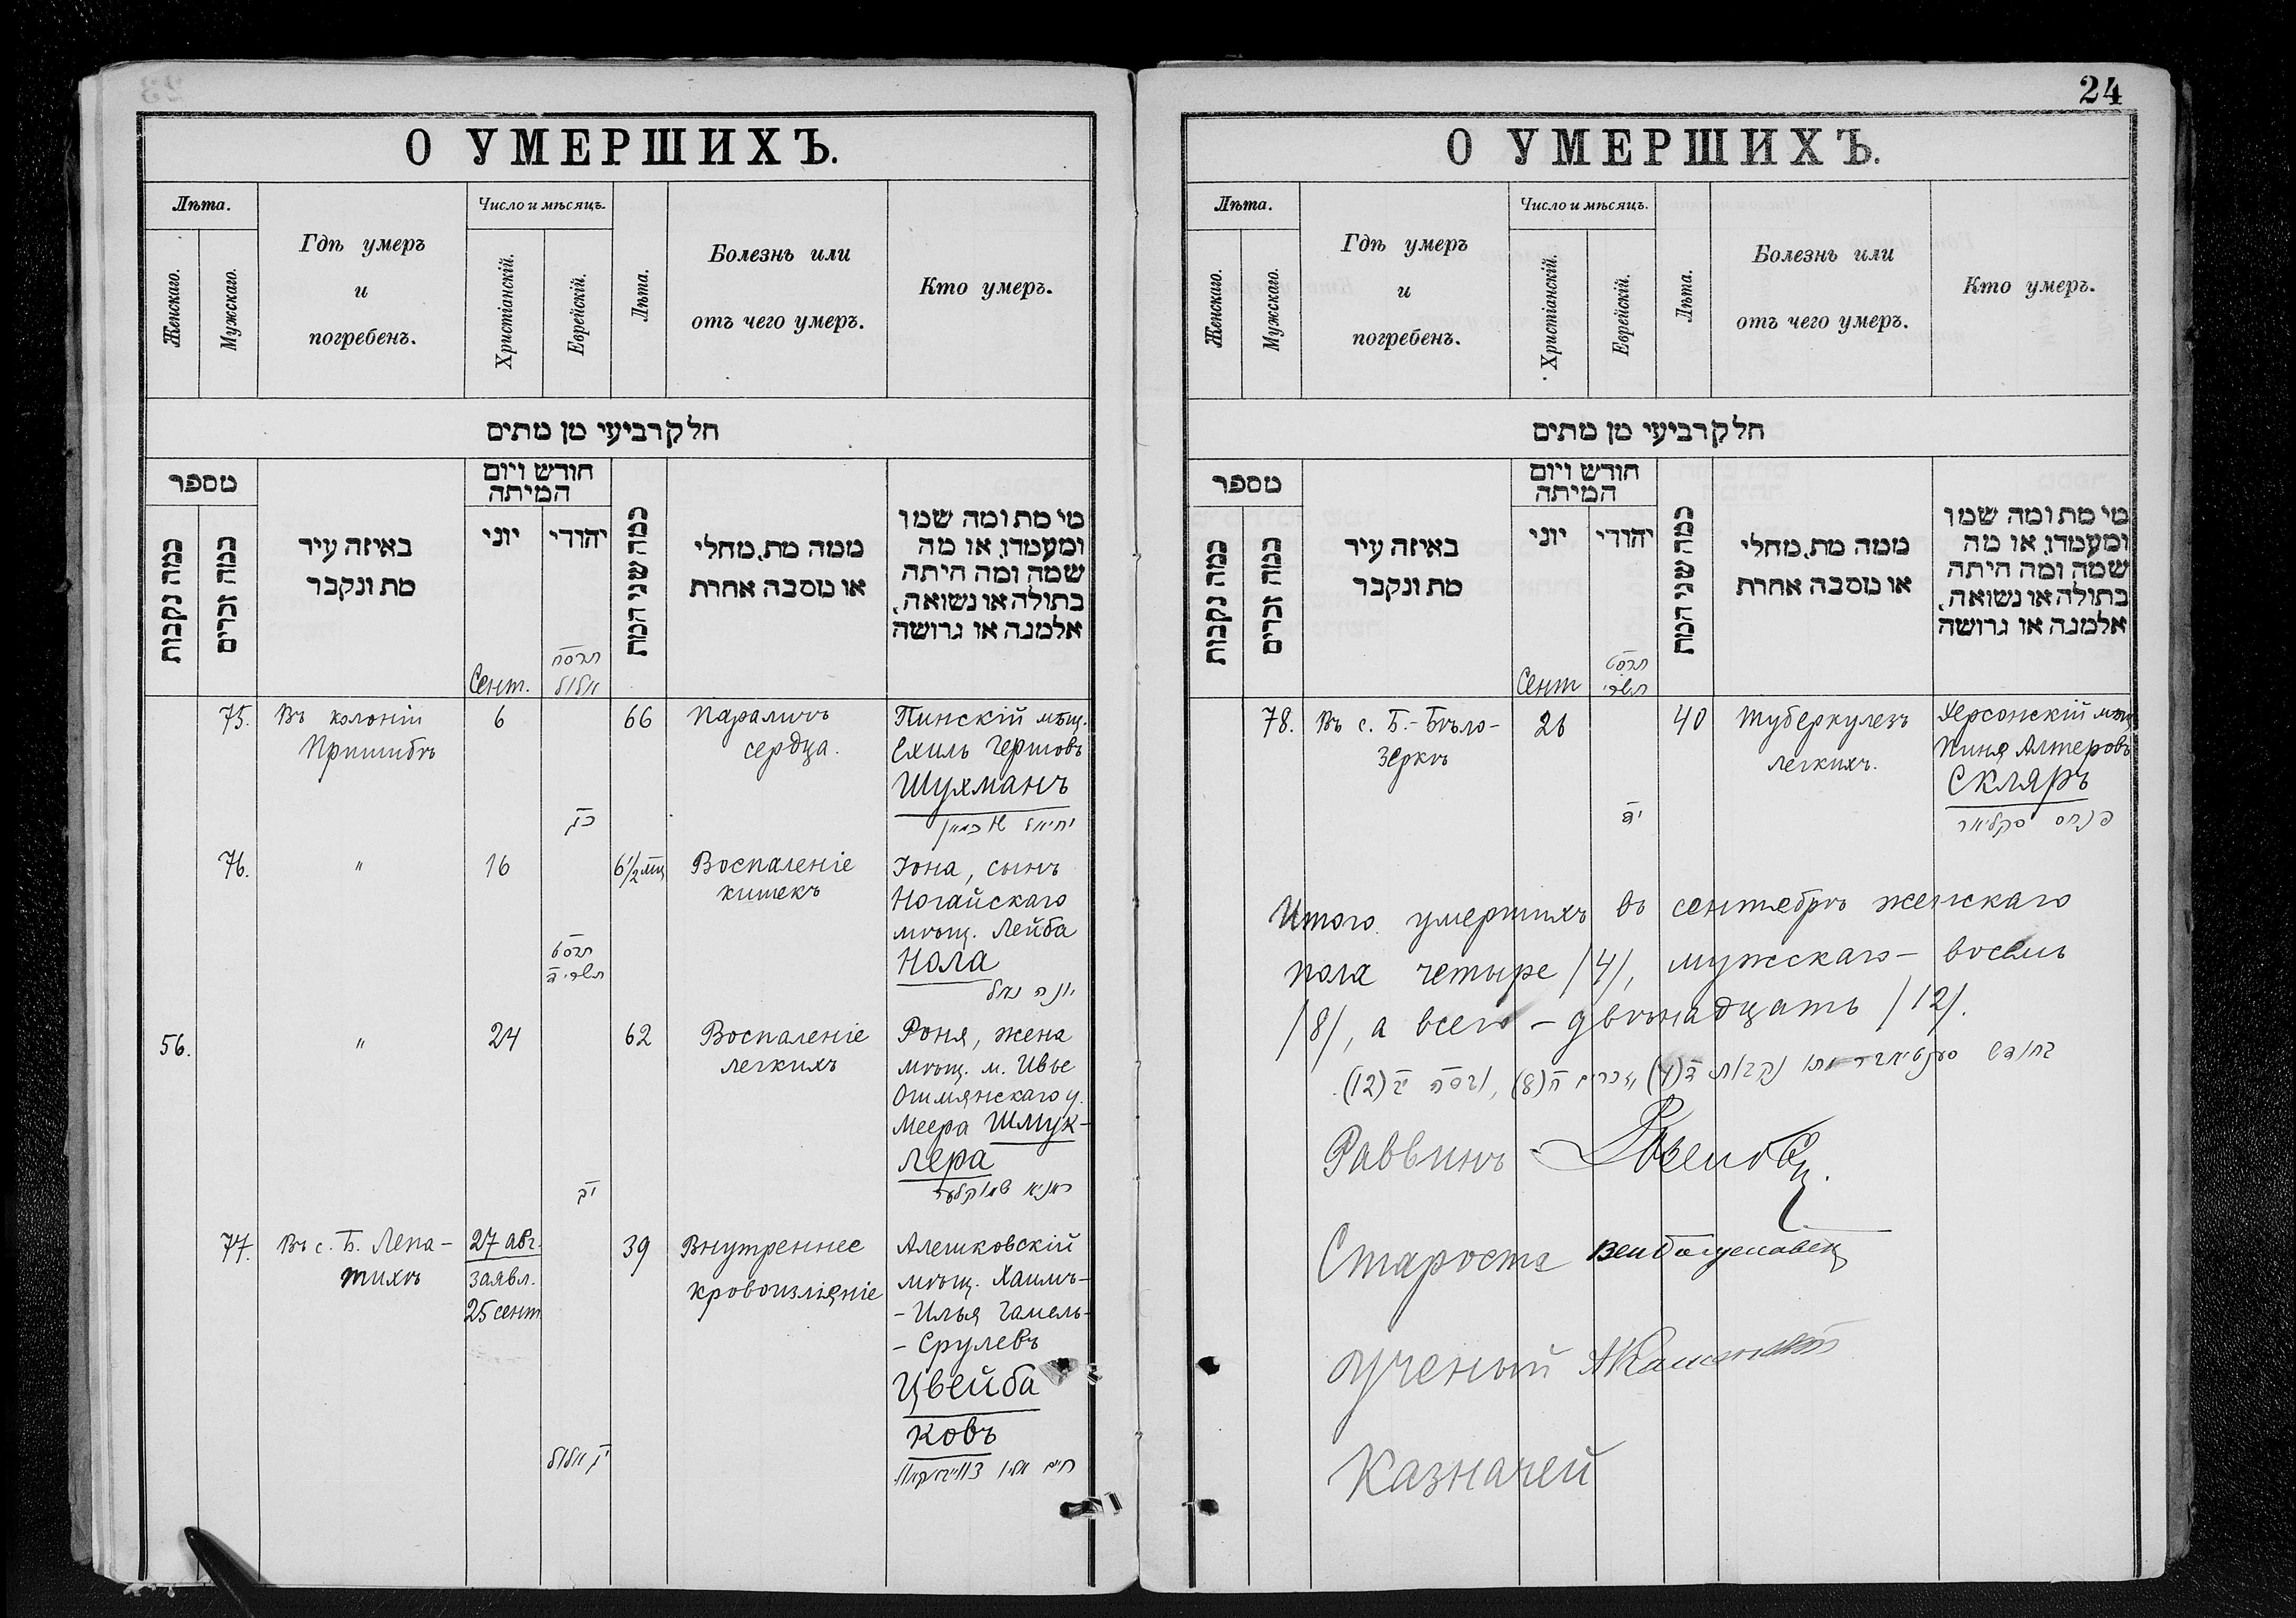 О УМЕРШИХЪ.
Лѣта.
Женскаго.
Мужскаго.
Гдѣ умеръ
и
погребенъ.
Число и мѣсяцъ.
Христіанскій.
Еврейскій.
Лѣта.
Болезнь или
отъ чего умеръ.
Кто умеръ.
חלק רביעי מן מתים
מספר
כמה נקבות
כמה זכרים
באיזה עיר
מת ונקבר
חודש ויום
המיתה
יוני
יהודי
כמה שני המת
ממה מת, מחלי
או מסבה אחרת
מי מת ומה שמו
ומעמדו, או מה
שמה ומה היתה
בתולה או נשואה,
אלמנה או גרושה
Сент.
תרסח
אלול
75.
Въ колоніи
Пришибъ
6
כג
66
Параличъ
сердца.
Пинскій мѣщ.
Ехиль Гершовъ
Шухманъ
יחיאל
76.
"
16
תרסט
תשרי ב
6½ мц
Воспаленіе
кишекъ
Іона, сынъ
Ногайскаго
мѣщ. Лейба
Нола
יונה נאל
56.
"
24
יב
62
Воспаленіе
легкихъ
Роня, жена
мѣщ. м. Ивье
Ошмянскаго у.
Меера Шмук-
лера
שמוקלער
77.
Въ с. Б. Лепа-
тихѣ
27 авг.
заявл.
25 сент.
יג אלול
39
Внутреннее
кровоизліяніе
Алешковскій
мѣщ. Хаимъ-
-Илья Гамель-
-Срулевъ
Цвейба
ковъ
חיים
24
О УМЕРШИХЪ.
Лѣта.
Женскаго.
Мужскаго.
Гдѣ умеръ
и
погребенъ.
Число и мѣсяцъ.
Христіанскій.
Еврейскій.
Лѣта.
Болезнь или
отъ чего умеръ.
Кто умеръ.
חלק רביעי מן מתים
מספר
כמה נקבות
כמה זכרים
באיזה עיר
מת ונקבר
חודש ויום
המיתה
יוני
יהודי
כמה שני המת
ממה מת, מחלי
או מסבה אחרת
מי מת ומה שמו
ומעמדו, או מה
שמה ומה היתה
בתולה או נשואה,
אלמנה או גרושה
Сент
תרסט
תשרי
78.
Въ с. Б.-Бѣло-
зеркѣ
26
40
Туберкулезъ
легкихъ.
Херсонскій мѣщ
Пиня Алтеровъ
Скляръ
פנחס סקליאר
Итого умершихъ въ сентябрѣ женскаго
пола четыре /4/, мужскаго - восемь
/8/, а всего - двѣнадцать /12/.
בחודש סענטיאבר מתו נקבות ד (4) זכרים ח (8), ובסה יב (12).
Раввинъ
Староста
Ученый
Казначей